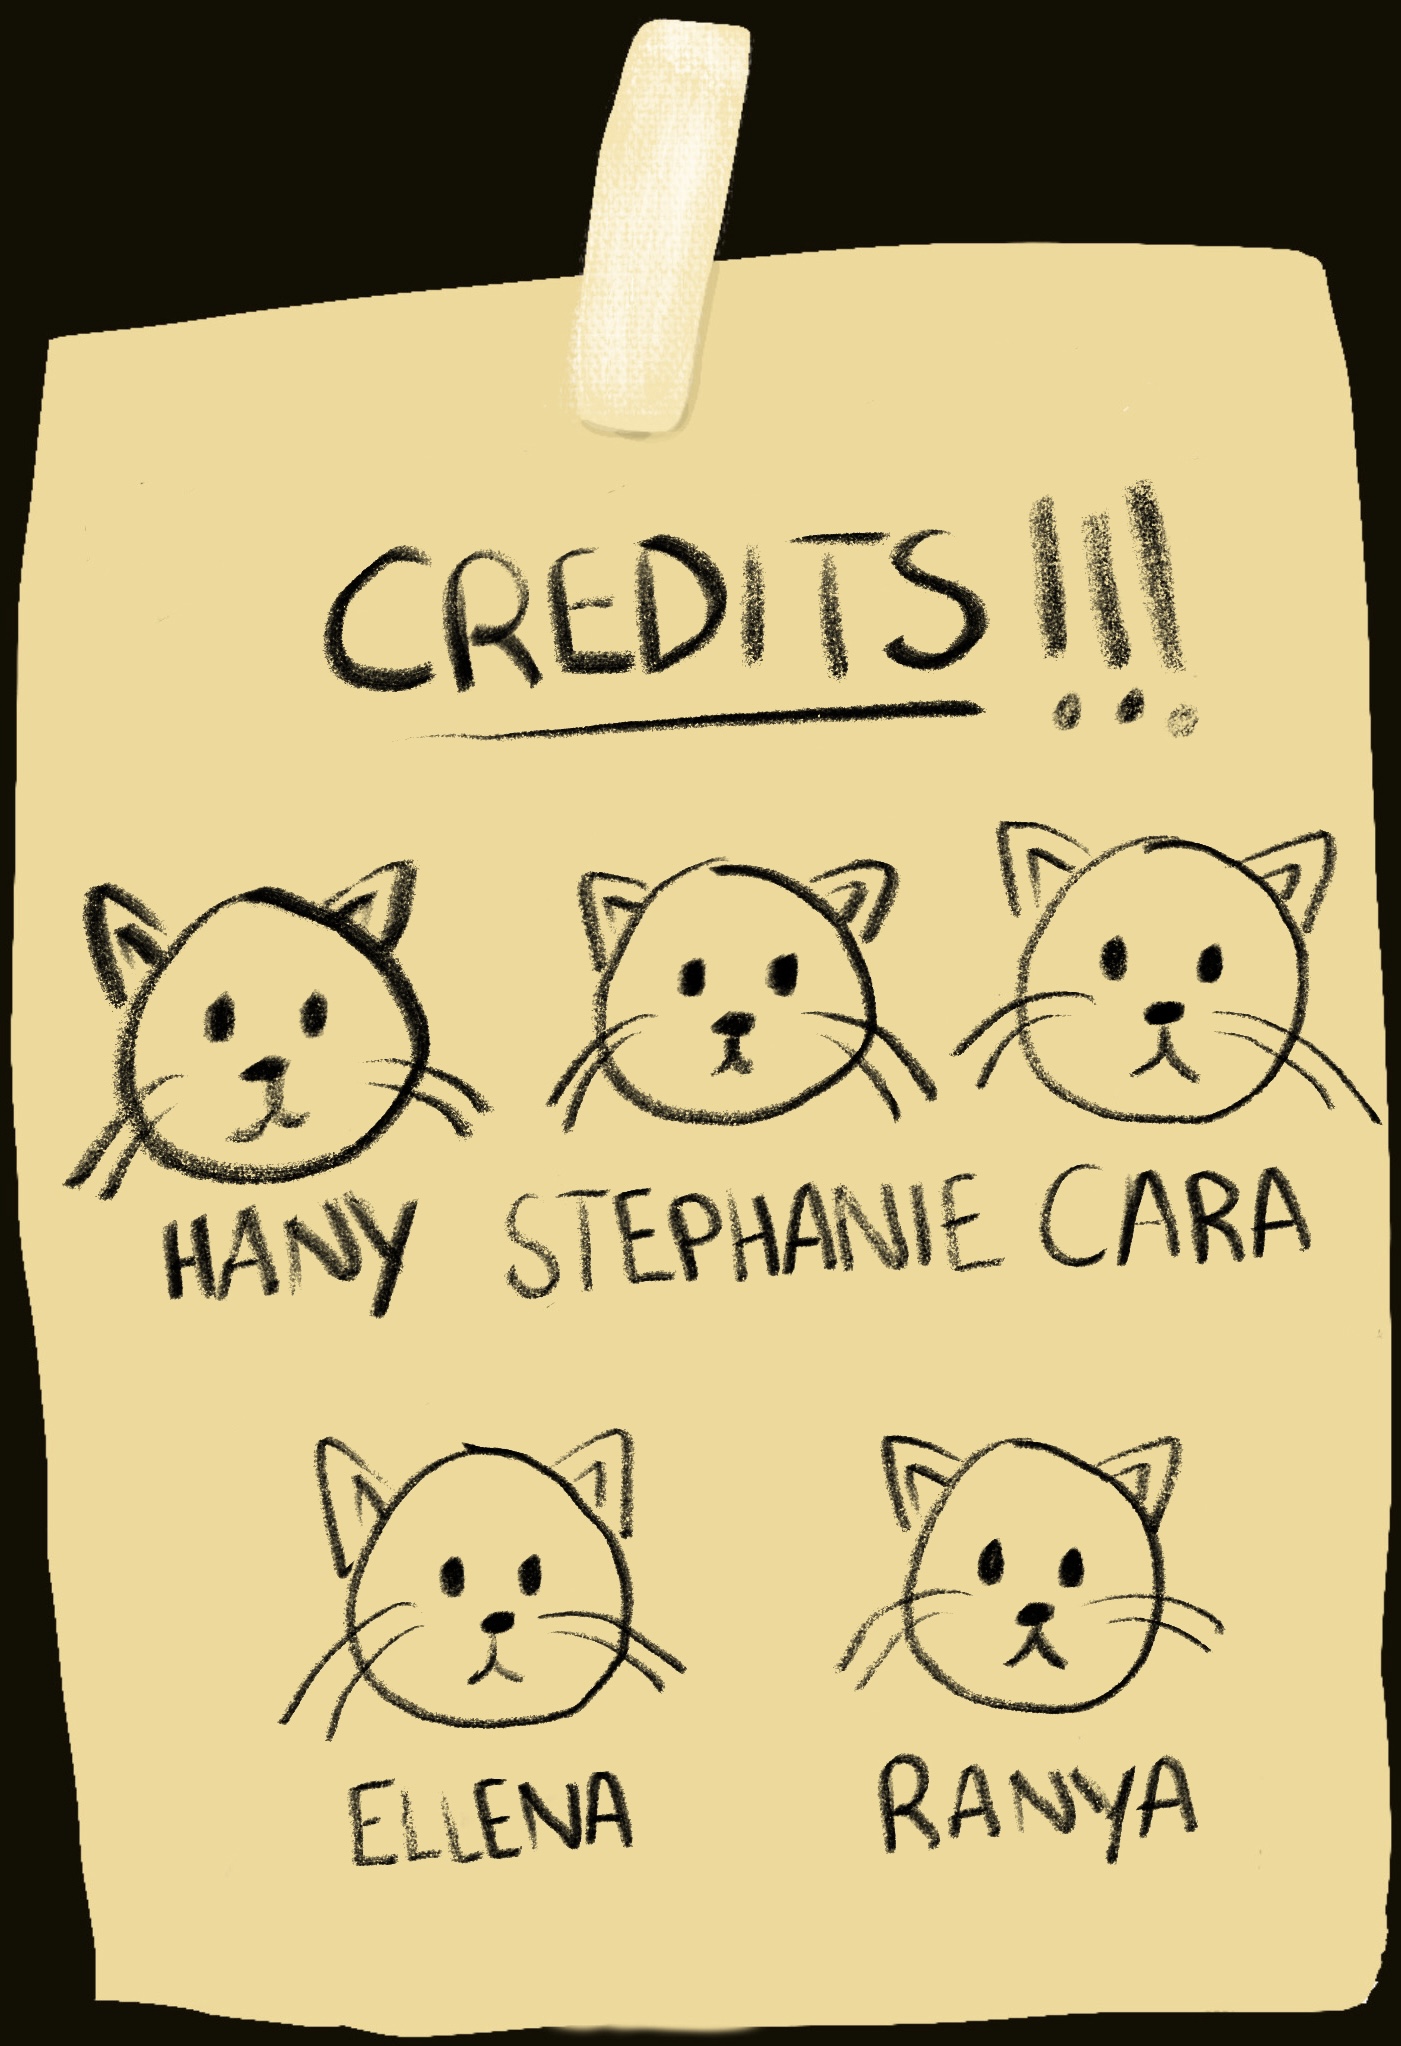 CREDITS!!!
HANY STEPHANIE CARA
ELLENA RANYA